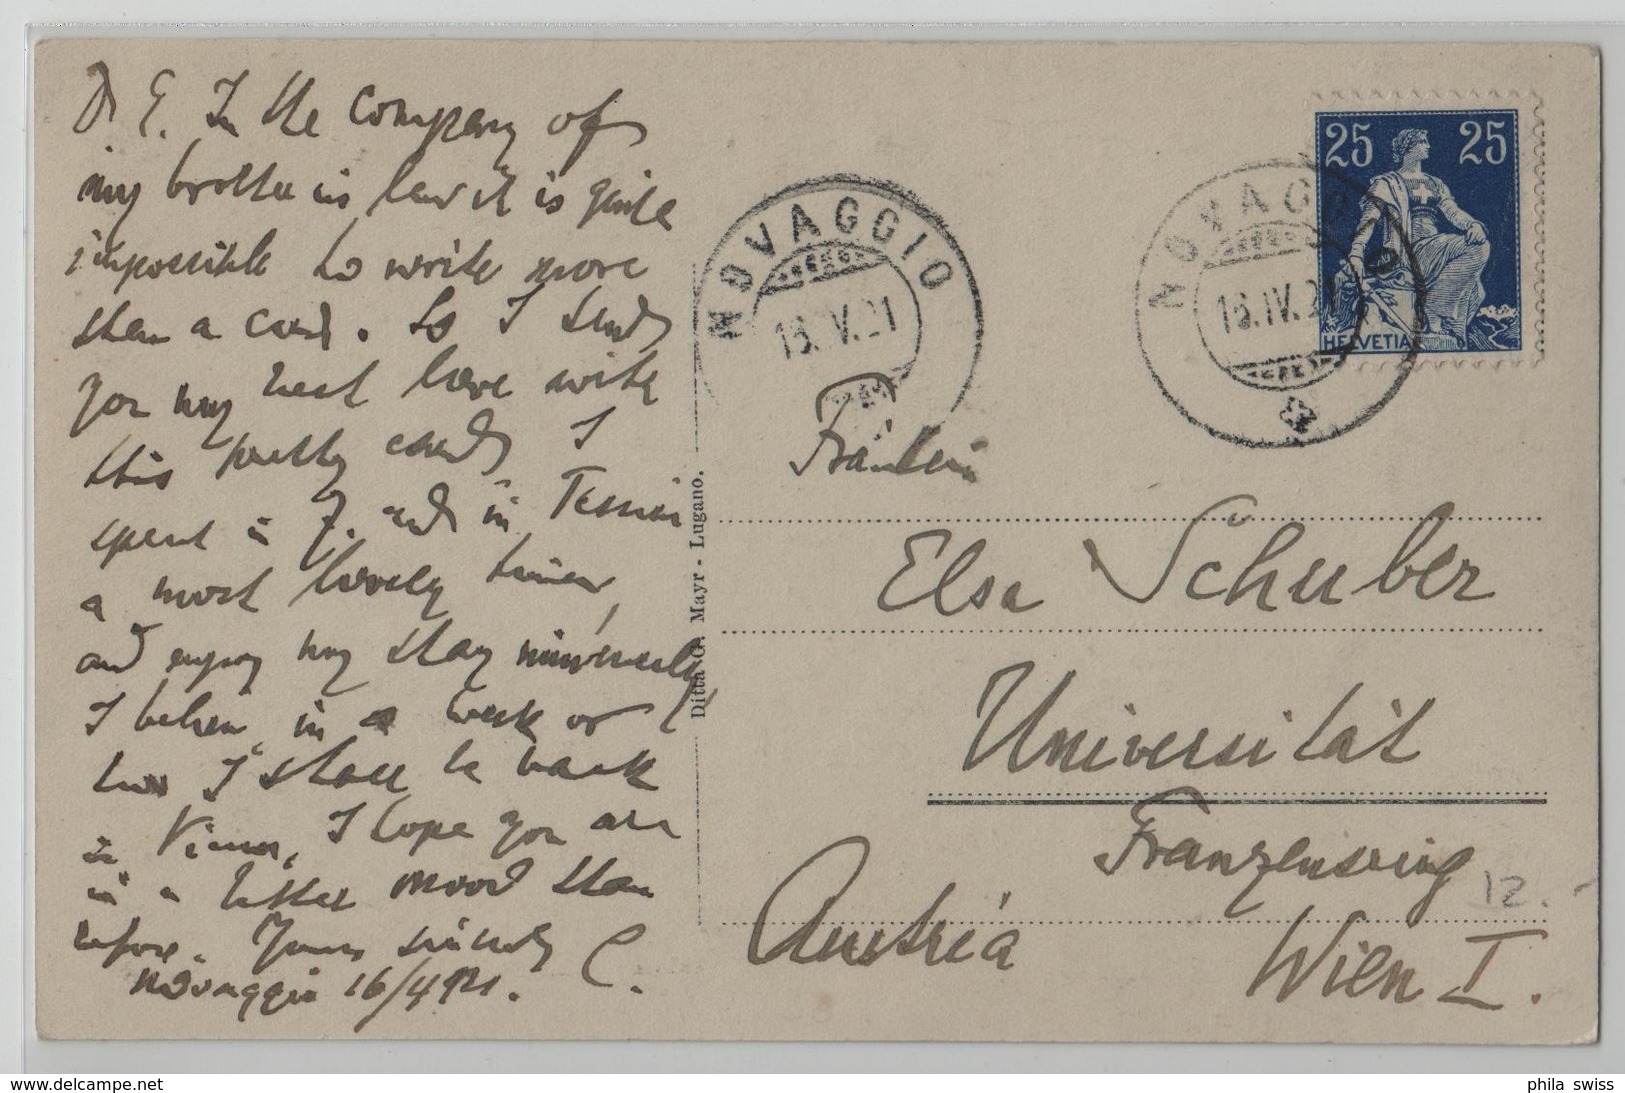 D E. In the company of
my brother in law it is quite
impossible to write more
than a card. So I send
you my best love with
this pretty card. I
spent in Z. and in Tessin
a most lovely time,
and enjoy my stay immensely
I believe in a week or
two I shall be back
in Vienna, I hope you are
in a better mood than
before. Yours sincerely
C.
Novaggio 16/4 921.
Ditta G. Mayr - Lugano.
NOVAGGIO
16.IV.21
NOVAGGIO
16.IV.21
25 25
HELVETIA
Fräulein
Elsa Schuber
Universität
Franzensring
12.
Austria
Wien I.
www.delcampe.net
phila swiss